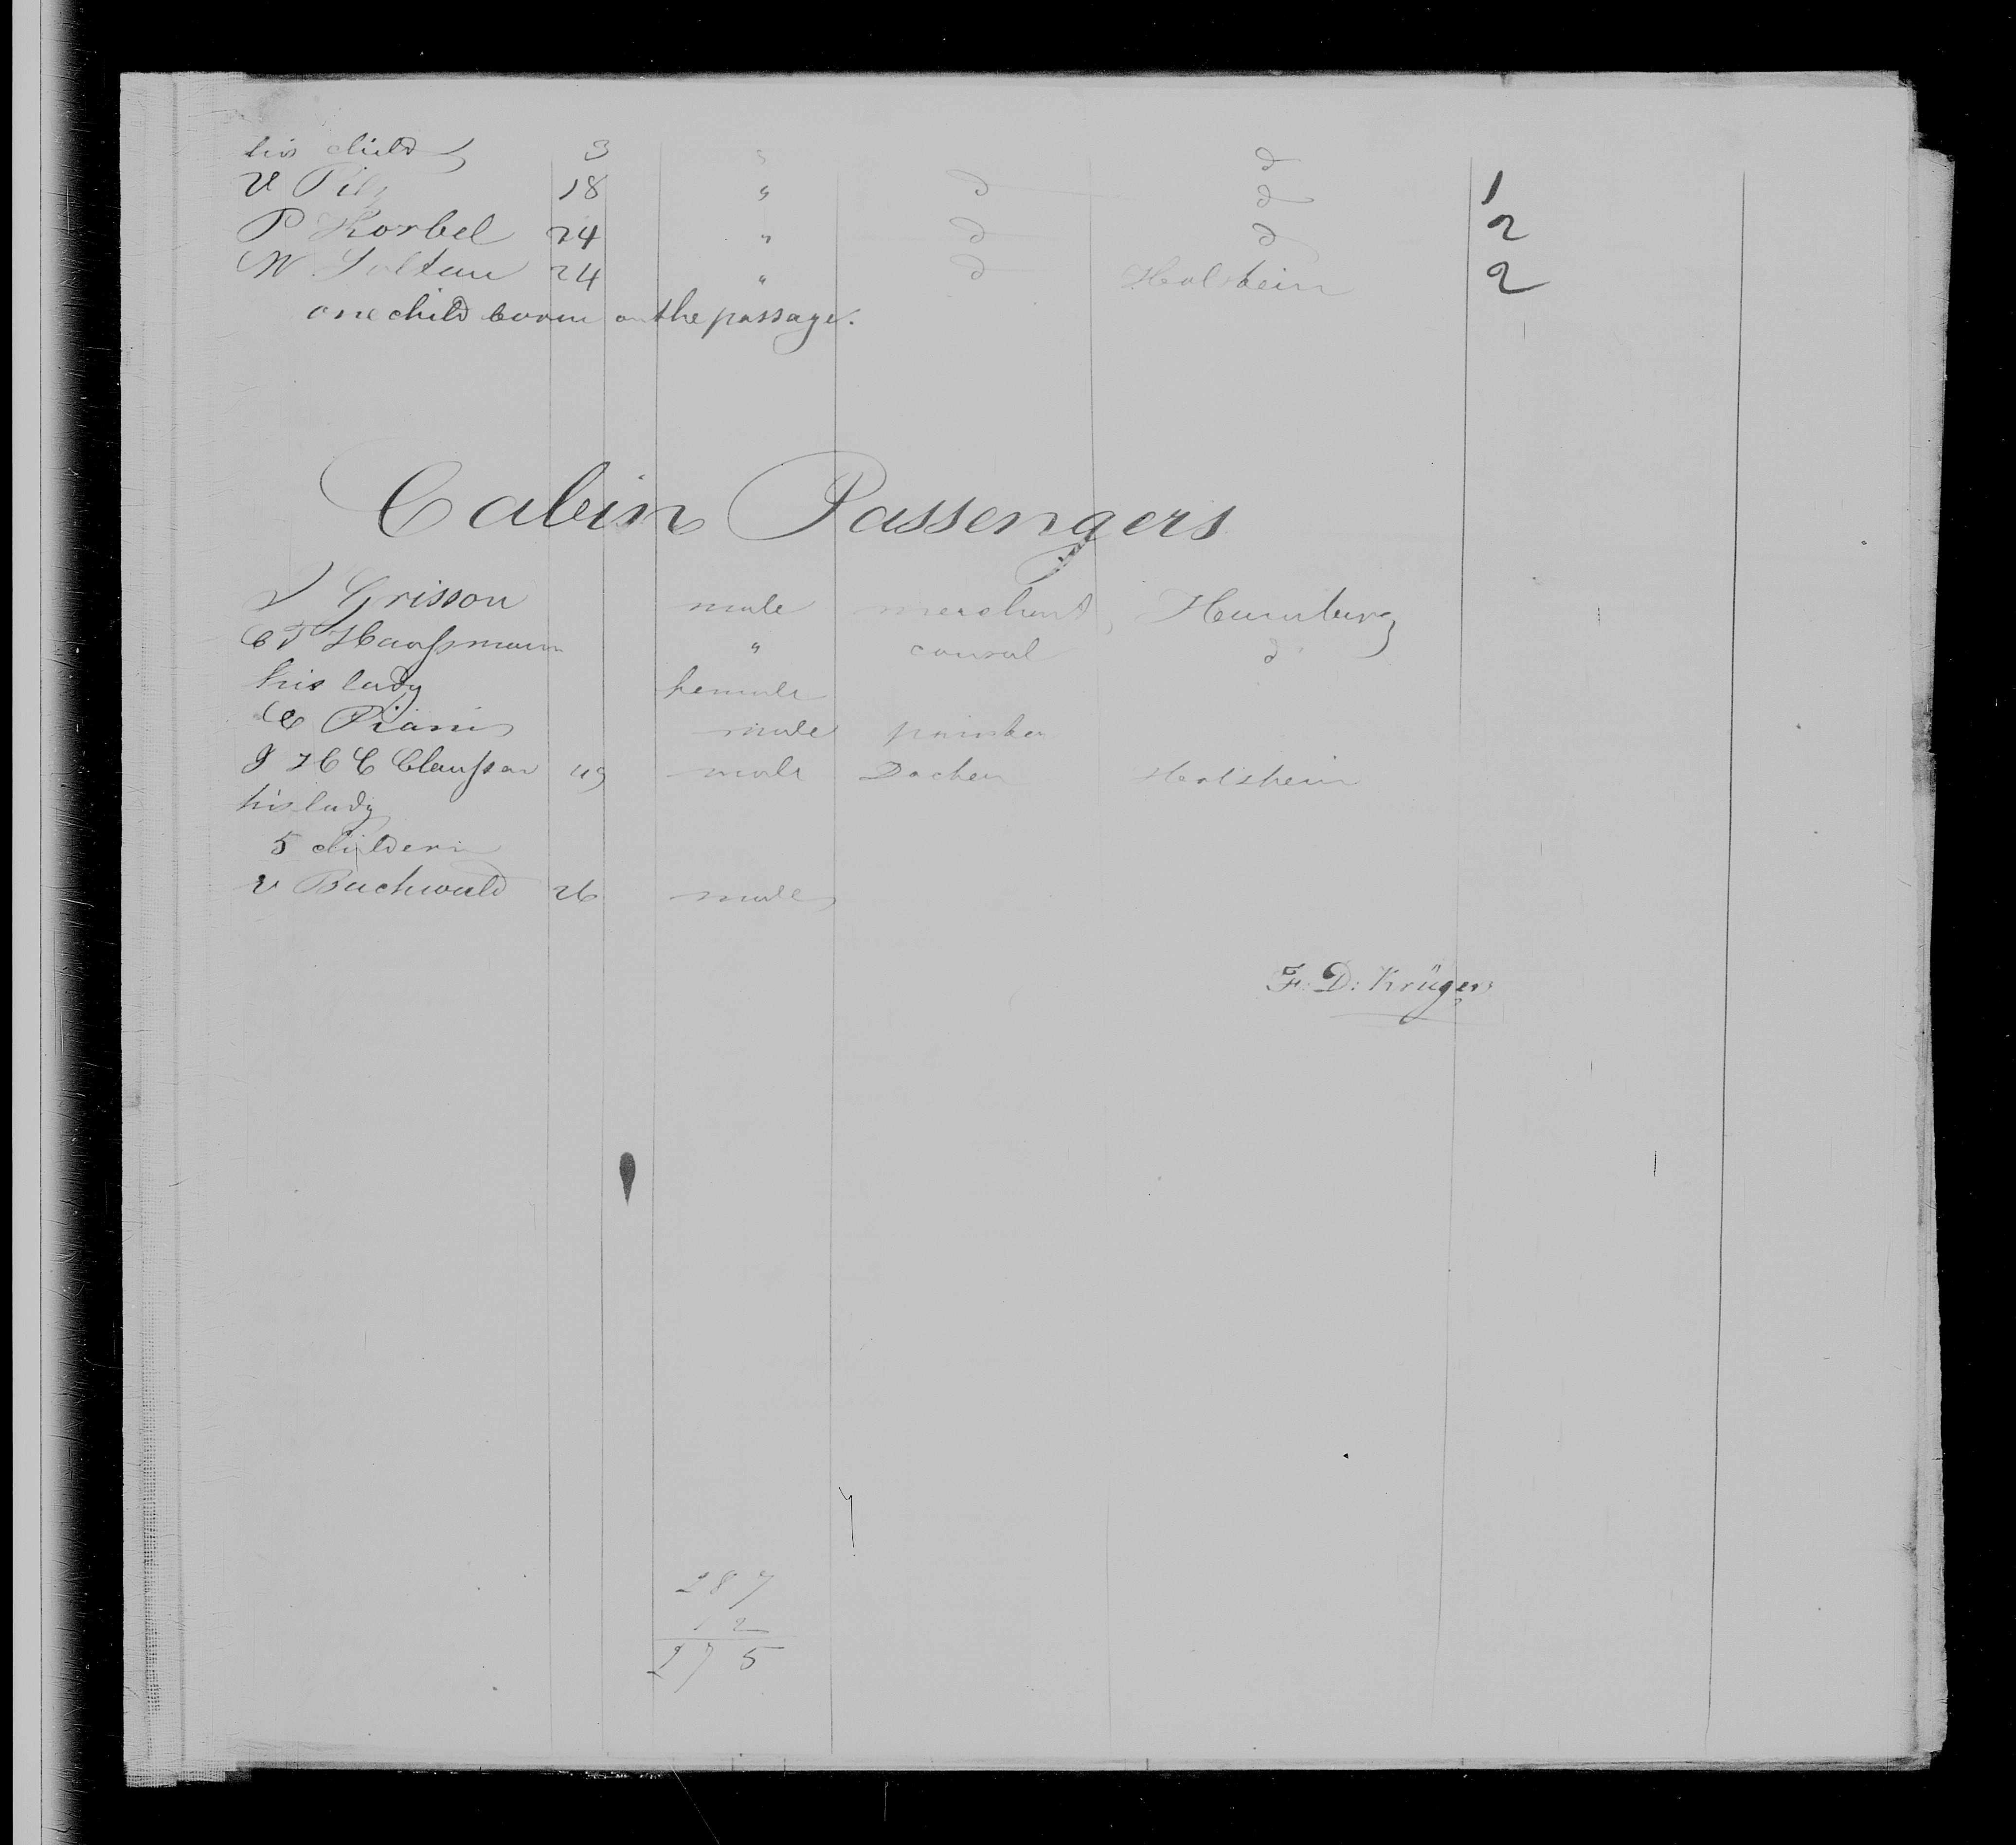 his child 3 " d
V Pilz 18 " d d 1
P Korbel 24 " d d 2
W Soltau 24 " d Holstein 2
one child born on the passage.
Cabin Passengers
Grisson male merchant Hamburg
C F Haussmann " consul d
his lady female
C Piani male painter
J H C Claussen 49 male Docter Holstein
his lady
5 childern
v Buchwald 26 male
F. D: Krüger
287
12
275